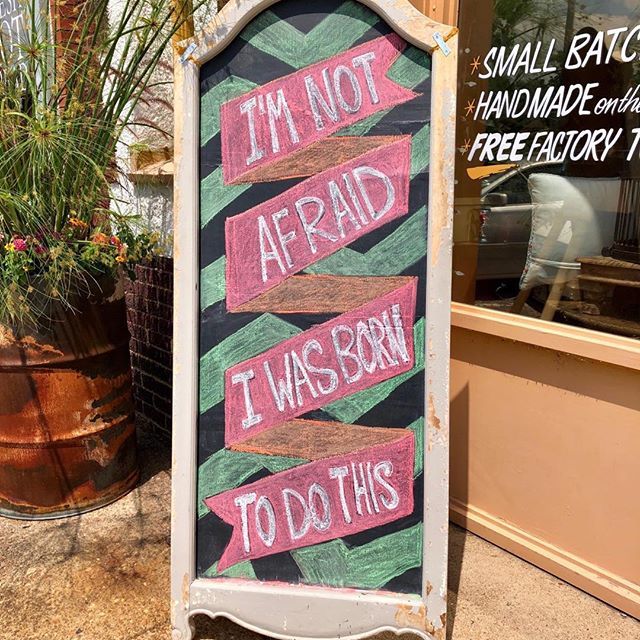 I'M NOT
AFRAID
I WAS BORN
TO DO THIS
*SMALL BATC
*HANDMADE on the
*FREE FACTORY T